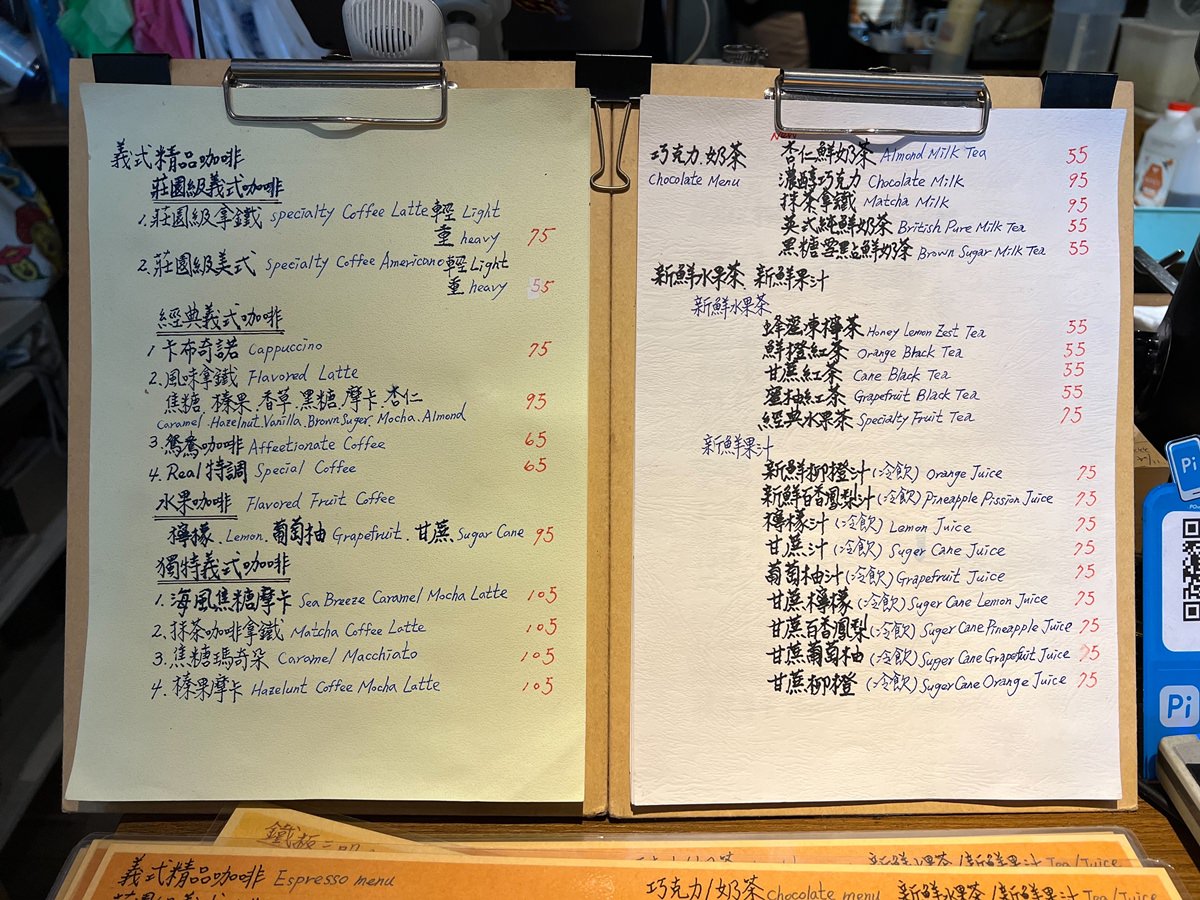 義式精品咖啡
莊園級義式咖啡
1.莊園級拿鐵 specialty Coffee Latte 輕 Light
重 heavy 75
2.莊園級美式 Specialty Coffee Americano 輕 Light
重 heavy 55
經典義式咖啡
1 卡布奇諾 Cappuccino 75
2.風味拿鐵 Flavored Latte
焦糖.榛果.香草.黑糖.摩卡.杏仁 95
Caramel.Hazelnut.Vanilla.Brown Suger.Mocha.Almond
3.鴛鴦咖啡 Affeetionate Coffee 65
4.Real特調 Special Coffee 65
水果咖啡 Flavored Fruit Coffee
檸檬.Lemon.葡萄柚 Grapefruit.甘蔗.Sugar Cane 95
獨特義式咖啡
1.海風焦糖摩卡 Sea Breeze Caramel Mocha Latte 105
2.抹茶咖啡拿鐵 Matcha Coffee Latte 105
3.焦糖瑪奇朵 Caramel Macchiato 105
4.榛果摩卡 Hazelunt Coffee Mocha Latte 105
巧克力.奶茶 杏仁鮮奶茶 Almond Milk Tea 55
Chocolate Menu 濃醇巧克力 Chocolate Milk 95
抹茶拿鐵 Matcha Milk 95
英式純鮮奶茶 British Pure Milk Tea 55
黑糖雲點鮮奶茶 Brown Sugar Milk Tea 55
新鮮水果茶、新鮮果汁
新鮮水果茶
蜂蜜凍檸茶 Honey Lemon Zest Tea 55
鮮橙紅茶 Orange Black Tea 55
甘蔗紅茶 Cane Black Tea 55
蜜柚紅茶 Grapefruit Black Tea 55
經典水果茶 Specialty Fruit Tea 75
新鮮果汁
新鮮柳橙汁(冷飲) Orange Juice 75
新鮮百香鳳梨汁(冷飲) Pineapple Pission Juice 75
檸檬汁(冷飲) Lemon Juice 75
甘蔗汁(冷飲) Suger Cane Juice 75
葡萄柚汁(冷飲) Grapefruit Juice 75
甘蔗檸檬(冷飲) Suger Cane Lemon Juice 75
甘蔗百香鳳梨(冷飲) Suger Cane Pineapple Juice 75
甘蔗葡萄柚(冷飲) Suger Cane Grapefuit Juice 75
甘蔗柳橙(冷飲) Suger Cane Orange Juice 75
Pi
Pi
義式精品咖啡 Espresso menu
巧克力/奶茶 chocolate menu
新鮮水果茶/新鮮果汁 Tea/Juice
新鮮水果茶/新鮮果汁 Tea/Juice